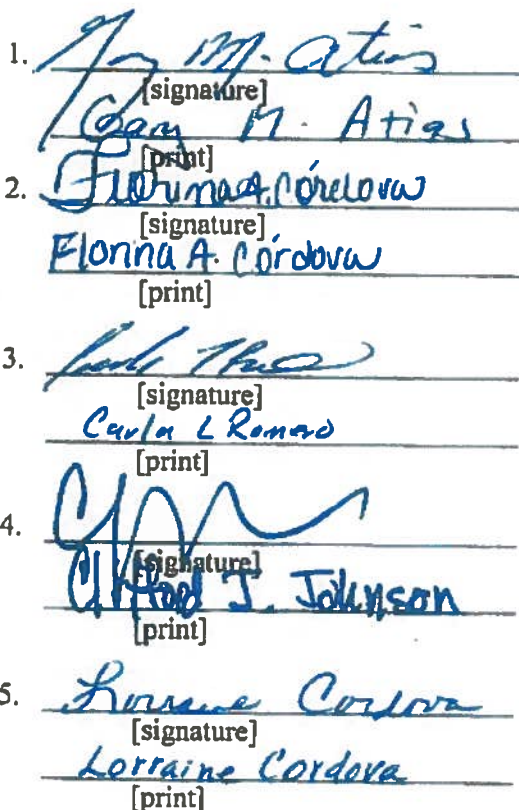 1. Gary M. Atias
[signature]
Gary M. Atias
[print]
2. Florina A. Córdova
[signature]
Florina A. Córdova
[print]
3.
[signature]
Carla L Romero
[print]
4.
[signature]
Clifford J. Johnson
[print]
5. Lorraine Cordova
[signature]
Lorraine Cordova
[print]